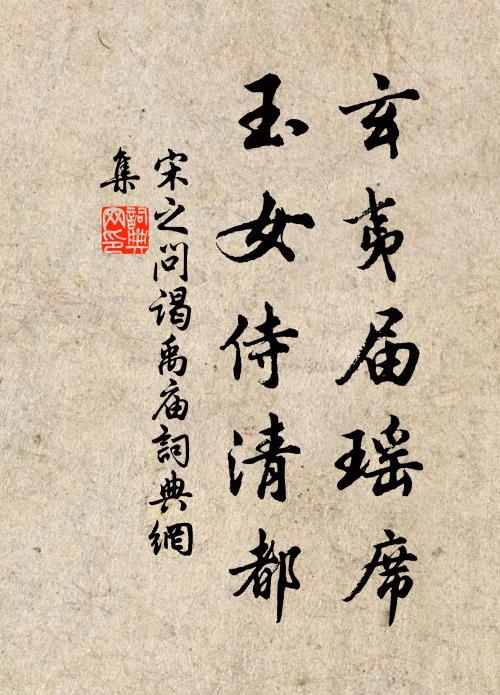 玄夷届瑶席
玉女侍清都
宋之问谒禹庙詞典網
集
詞典
网印